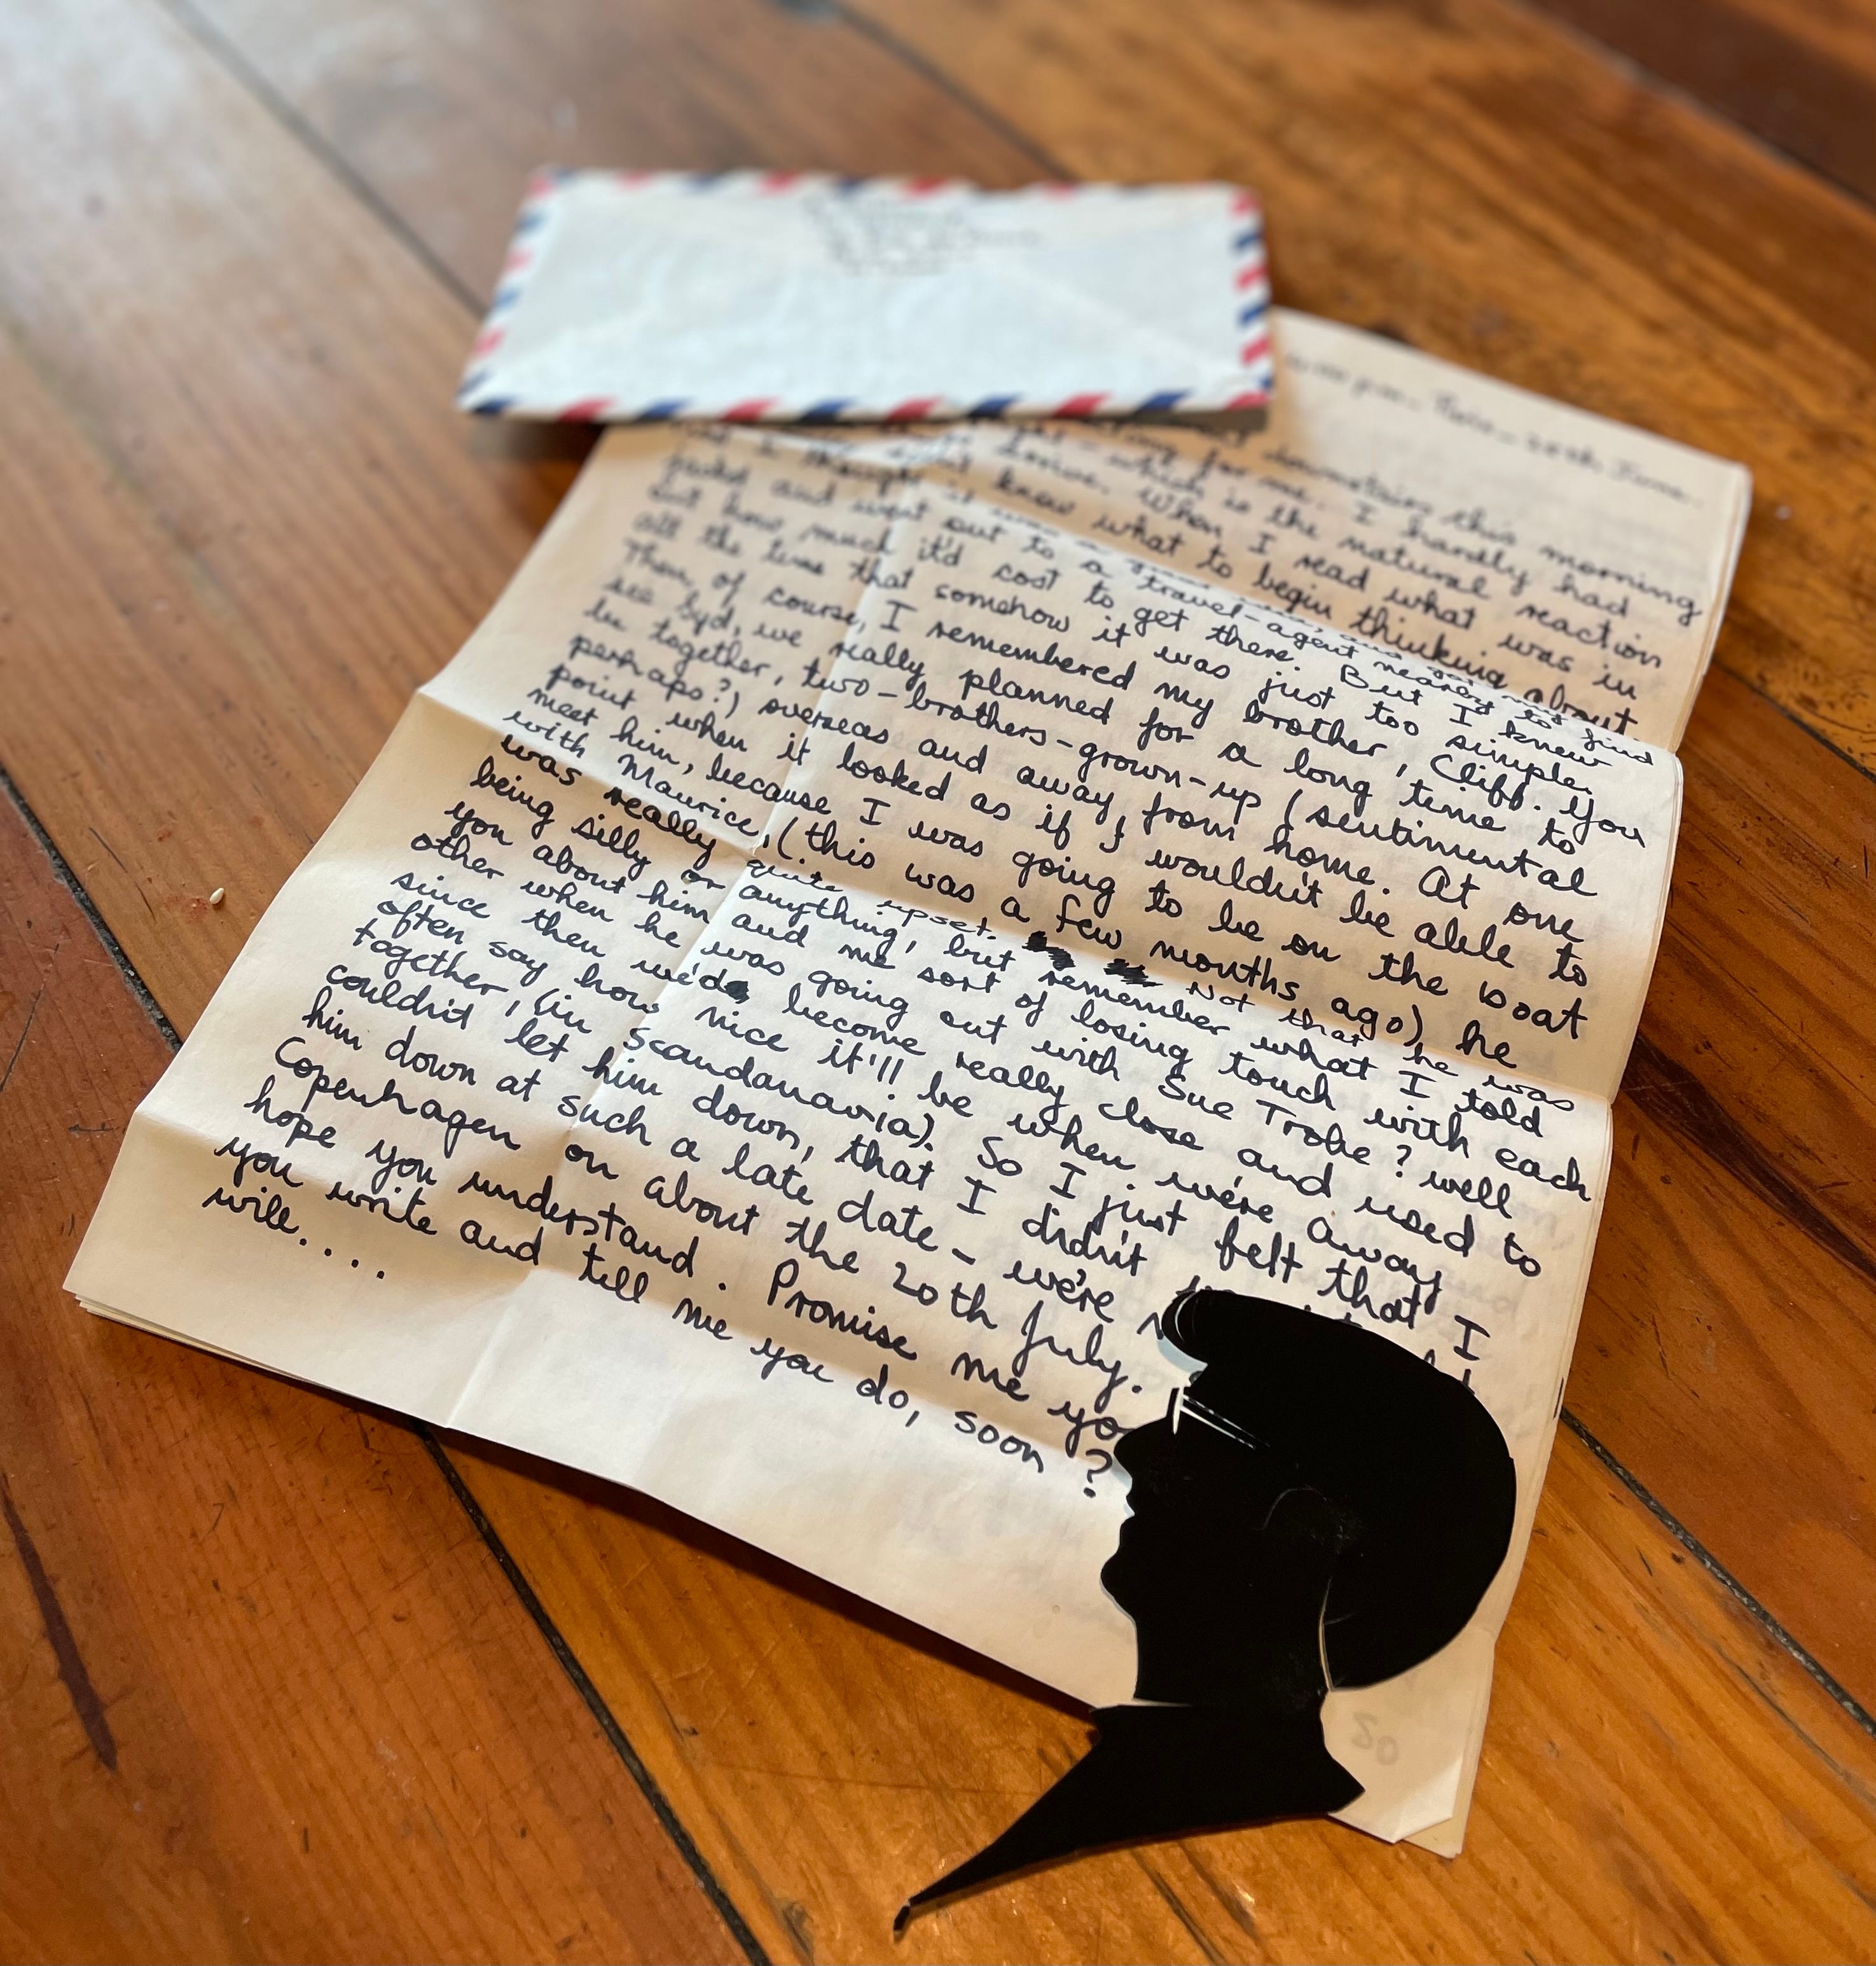 Paris – 20th June.
downstairs this morning
for me. I hardly had
– which is the natural reaction
When I read what was in
know what to begin thinking about
I thought it was a
and went out to a travel-agent nearby to find
out how much it'd cost to get there. But I knew
all the time that somehow it was just too simple.
Then, of course, I remembered my brother, Cliff. You
see Syd, we really planned for a long time to
be together, two-brothers-grown-up (sentimental
perhaps?) overseas and away from home. At one
point when it looked as if I wouldn't be able to
meet him, because I was going to be on the boat
with Maurice, (this was a few months ago), he
was really quite upset. Not that he was
being silly or anything, but remember what I told
you about him and me sort of losing touch with each
other when he was going out with Sue Trobe? Well
since then we'd become really close and used to
often say how nice it'll be when we're away
together, (in Scandanavia). So I just felt that I
couldn't let him down, that I didn't
him down at such a late date – we're
Copenhagen on about the 20th July.
hope you understand. Promise me
you write and tell me you do, soon?
will....